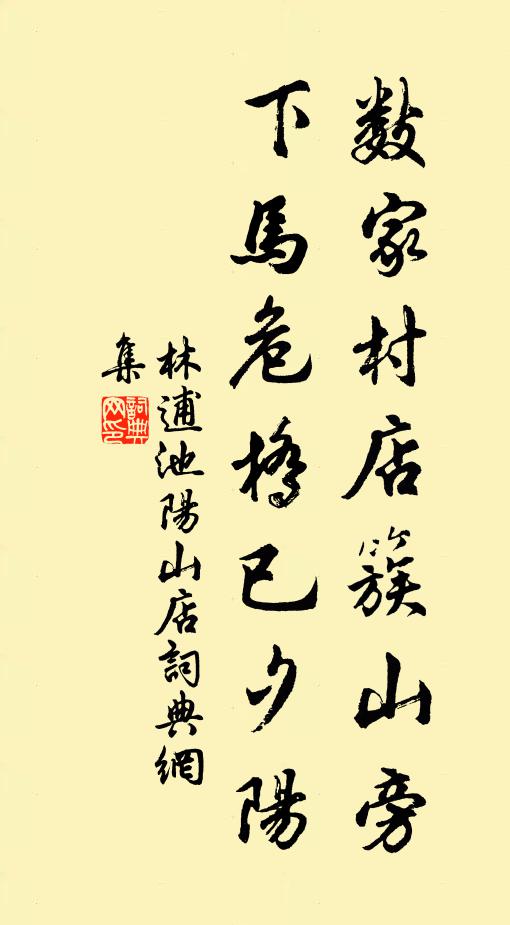 数家村店簇山旁
下馬危橋已夕陽
林逋池陽山店詞典網
集
詞典
网印